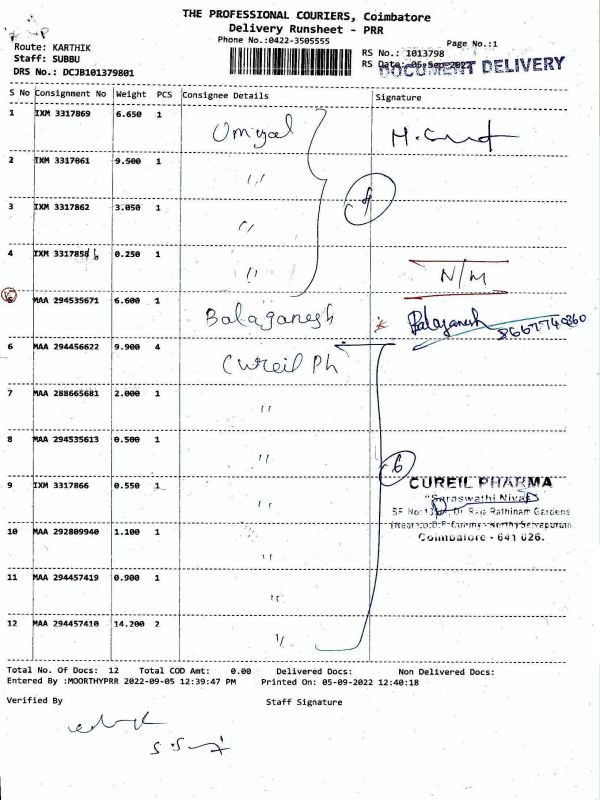 THE PROFESSIONAL COURIERS, Coimbatore
Delivery Runsheet - PRR
Phone No.:0422-3505555
Page No.:1
Route: KARTHIK
RS No.: 1013798
Staff: SUBBU
RS Date: 05-Sep-2022
DOCUMENT DELIVERY
DRS No.: DCJB101379801
S No Consignment No Weight PCS Consignee Details Signature
1 IXM 3317869 6.650 1 Umiyal
2 IXM 3317061 9.500 1 "
4
3 IXM 3317862 3.050 1 "
4 IXM 3317858 0.250 1 " N/M
5 MAA 294535671 6.600 1 Balaganesh Balaganesh
6 MAA 294456622 9.900 4 Cureil Ph
7 MAA 288665681 2.000 1 "
8 MAA 294535613 0.500 1 "
6
9 IXM 3317866 0.550 1 "
CUREIL PHARMA
"Saraswathi Nivas"
Dr Raja Rathinam Gardens
Selvapuram
Coimbatore - 641 026.
10 MAA 292809940 1.100 1 "
11 MAA 294457419 0.900 1 "
12 MAA 294457410 14.200 2 "
Total No. Of Docs: 12 Total COD Amt: 0.00 Delivered Docs: Non Delivered Docs:
Entered By :MOORTHYPRR 2022-09-05 12:39:47 PM Printed On: 05-09-2022 12:40:18
Verified By Staff Signature